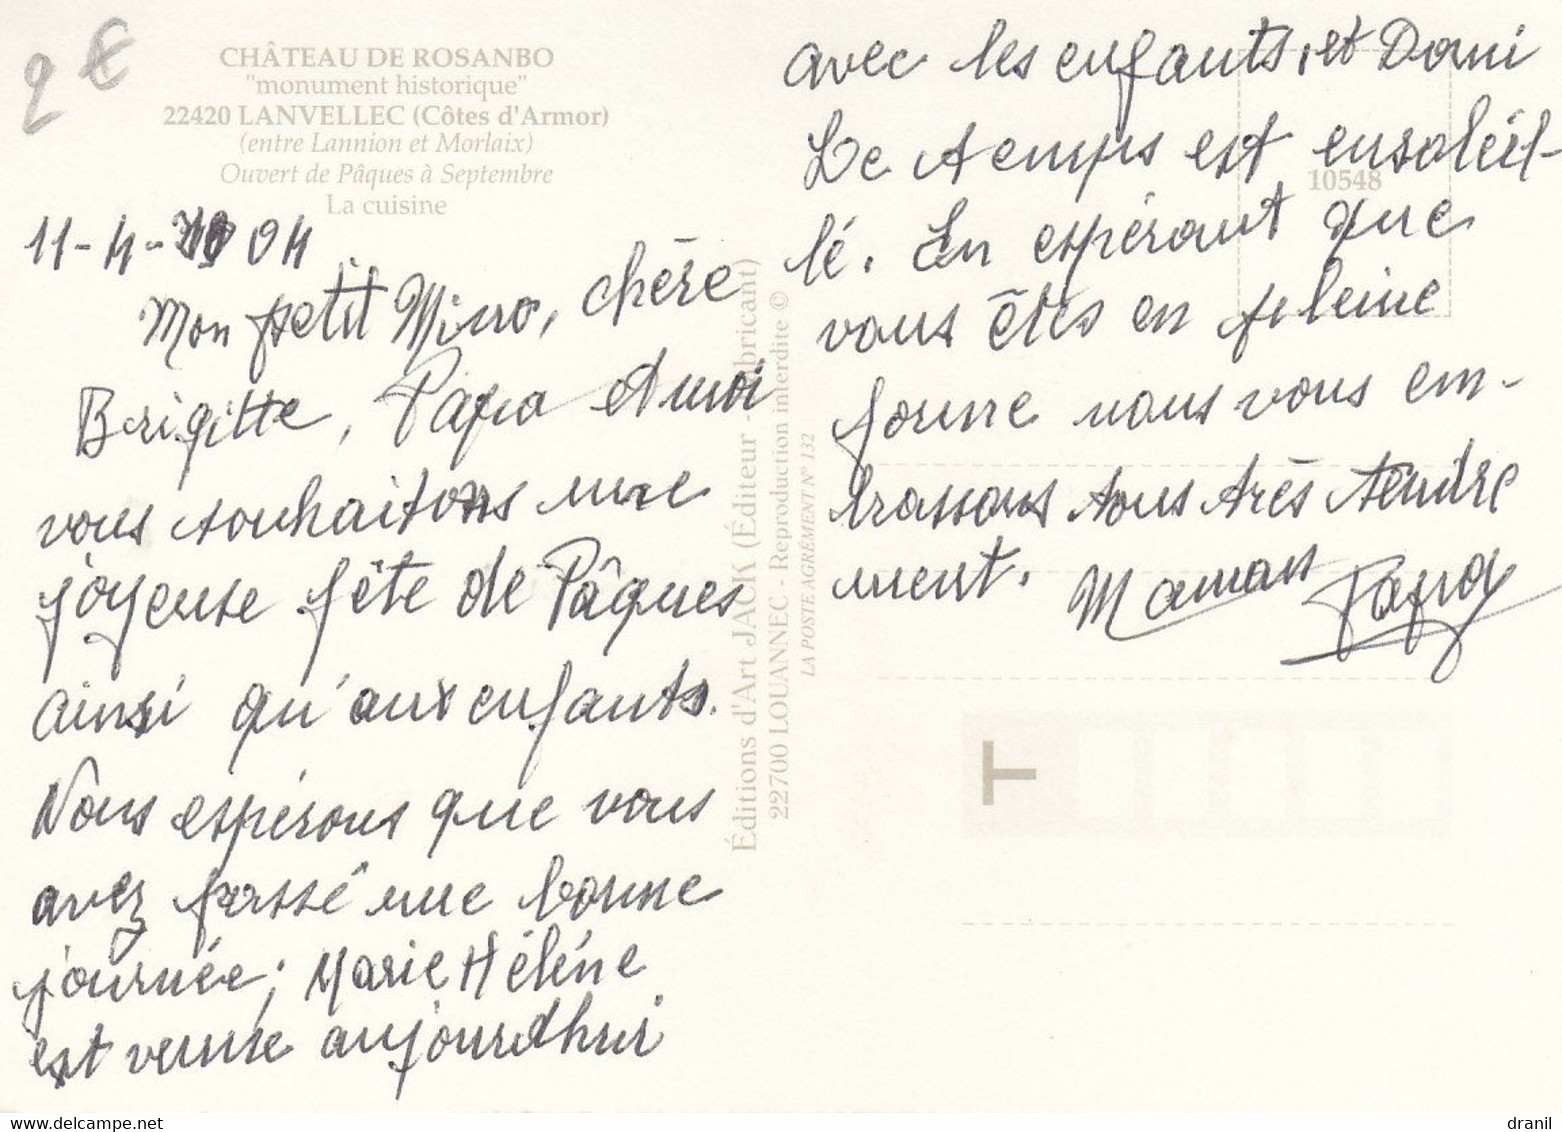 2 €
CHÂTEAU DE ROSANBO
"monument historique"
22420 LANVELLEC (Côtes d'Armor)
(entre Lannion et Morlaix)
Ouvert de Pâques à Septembre
La cuisine
11-4- 04
Mon petit Mino, chère
Brigitte, Papa et moi
vous souhaitons une
joyeuse fête de Pâques
ainsi qu'aux enfants.
Nous espérons que vous
avez passé une bonne
journée; Marie Hélène
est venue aujourd'hui
avec les enfants, et Domi
Le temps est ensoleil-
lé. En espérant que
vous êtes en pleine
forme nous vous em-
brassons tous très tendre
ment. Maman Papa
Éditions d'Art JACK (Éditeur - Fabricant)
22700 LOUANNEC - Reproduction interdite ©
LA POSTE AGRÉMENT N° 132
10548
T
delcampe.net
dranil